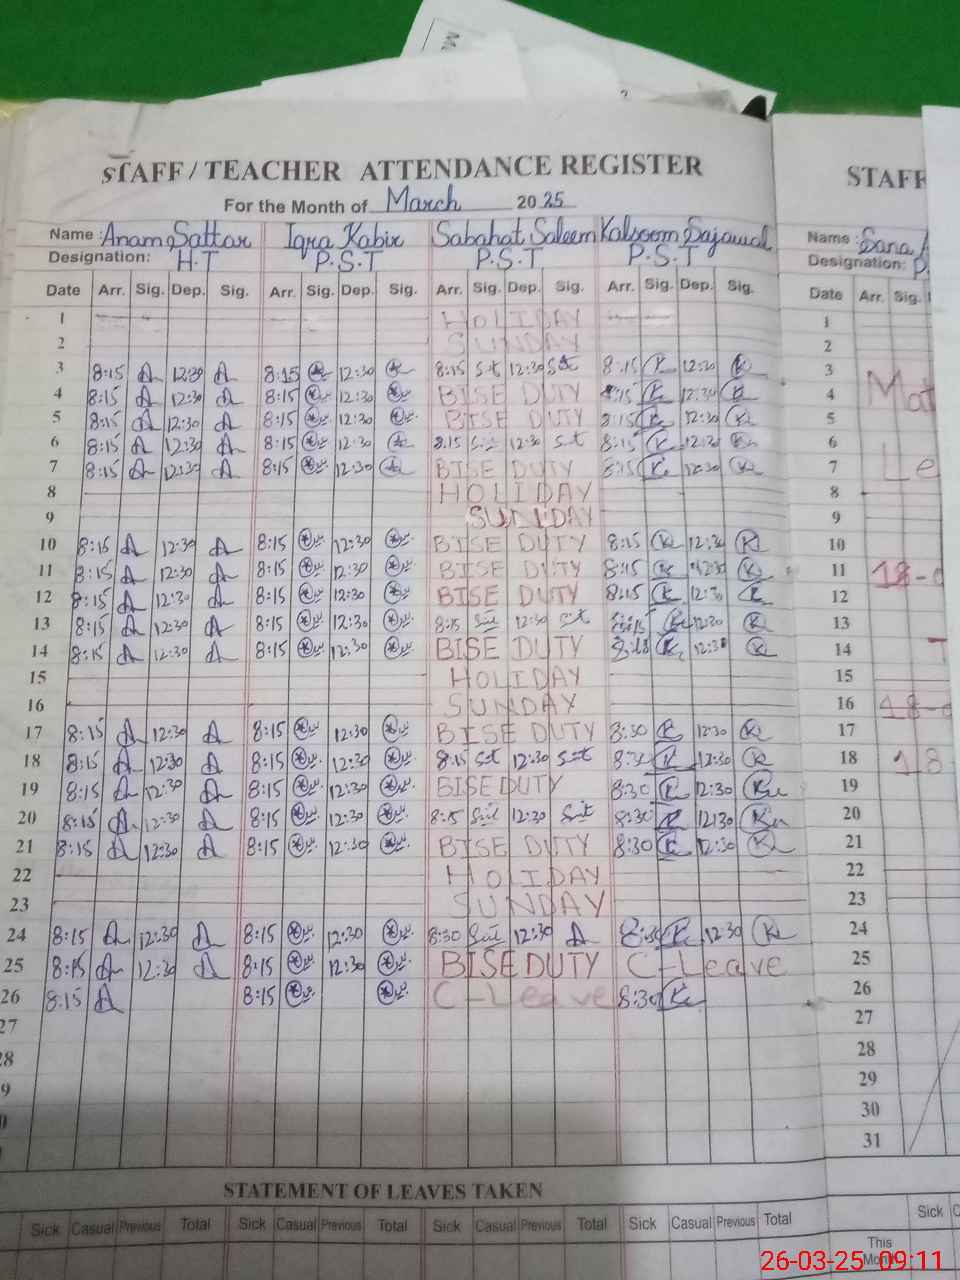 STAFF / TEACHER ATTENDANCE REGISTER
STAFF
For the Month of March 2025
Name : Anam Sattar Iqra Kabir Sabahat Saleem Kalsoom Sajawal Name : Sana
Designation: H.T P.S.T P.S.T P.S.T Designation: P.
Date Arr. Sig. Dep. Sig. Arr. Sig. Dep. Sig. Arr. Sig. Dep. Sig. Arr. Sig. Dep. Sig. Date Arr. Sig.
1 HOLIDAY 1
2 SUNDAY 2
3 8:15 A 12:30 A 8:15 12:30 8:15 Sat 12:30 Sat 8:15 K 12:30 K 3
4 8:15 A 12:30 A 8:15 12:30 BISE DUTY 8:15 K 12:30 K 4 Mat
5 8:15 A 12:30 A 8:15 12:30 BISE DUTY 8:15 K 12:30 K 5
6 8:15 A 12:30 A 8:15 12:30 8:15 12:30 Sat 8:15 K 12:30 K 6
7 8:15 A 12:30 A 8:15 12:30 BISE DUTY 8:15 K 12:30 K 7 Le
8 HOLIDAY 8
9 SUNDAY 9
10 8:15 A 12:30 A 8:15 12:30 BISE DUTY 8:15 K 12:30 K 10
11 8:15 A 12:30 A 8:15 12:30 BISE DUTY 8:15 K 12:30 K 11 18-0
12 8:15 A 12:30 A 8:15 12:30 BISE DUTY 8:15 K 12:30 K 12
13 8:15 A 12:30 A 8:15 12:30 8:15 12:30 8:15 K 12:30 K 13
14 8:15 A 12:30 A 8:15 12:30 BISE DUTY K 12:30 K 14 T
15 HOLIDAY 15
16 SUNDAY 16 18-0
17 8:15 A 12:30 A 8:15 12:30 BISE DUTY 8:30 K 12:30 K 17
18 8:15 A 12:30 A 8:15 12:30 8:15 Sat 12:30 Sat 8:30 K 12:30 K 18 18
19 8:15 A 12:30 A 8:15 12:30 BISE DUTY 8:30 K 12:30 K 19
20 8:15 A 12:30 A 8:15 12:30 8:15 12:30 Sat 8:30 K 12:30 K 20
21 8:15 A 12:30 A 8:15 12:30 BISE DUTY 8:30 K 12:30 K 21
22 HOLIDAY 22
23 SUNDAY 23
24 8:15 A 12:30 A 8:15 12:30 8:30 12:30 A 8:30 K 12:30 K 24
25 8:15 A 12:30 A 8:15 12:30 BISE DUTY C-Leave 25
26 8:15 A 8:15 C-Leave 8:30 K 26
27 27
28 28
9 29
0 30
31
STATEMENT OF LEAVES TAKEN
Sick Casual Previous Total Sick Casual Previous Total Sick Casual Previous Total Sick Casual Previous Total Sick C
This
Month
26-03-25 09:11